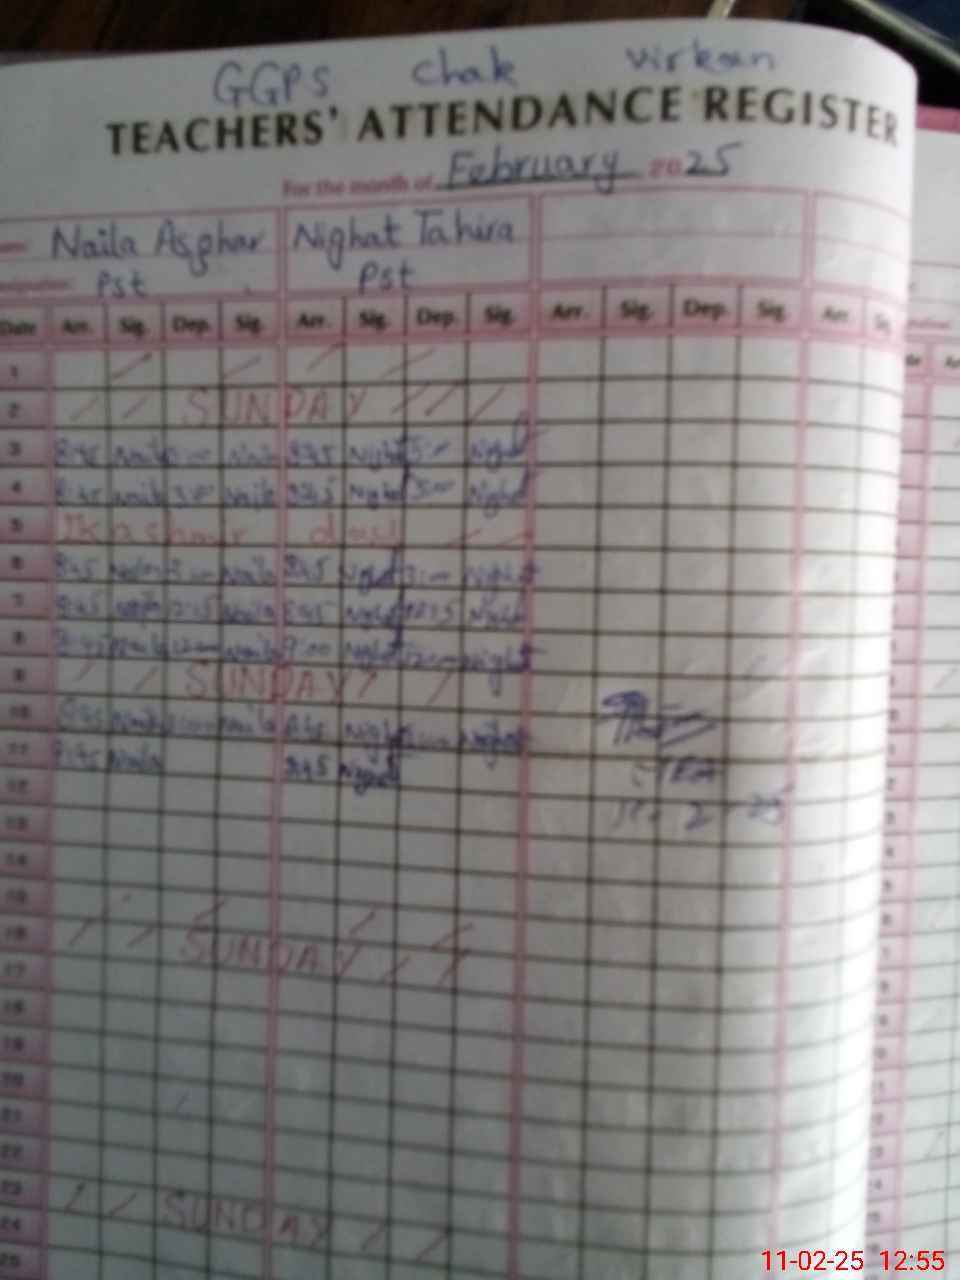 GGPS Chak Virkan
TEACHERS' ATTENDANCE REGISTER
For the month of February 2025
Naila Asghar Nighat Tahira
Pst Pst
Date Arr. Sig. Dep. Sig. Arr. Sig. Dep. Sig. Arr. Sig. Dep. Sig. Arr. Sig.
1
2 SUNDAY
3 8:45 Naila Naila 8:45 Nighat Nighat
4 8:45 Naila 3:00 Naila 8:45 Nighat 3:00 Nighat
5 Kashmir day
6 8:45 Naila 3:00 Naila 8:45 Nighat 3:00 Nighat
7 8:45 Naila 12:15 Naila 8:45 Nighat 12:15 Nighat
8 8:45 Naila 12:00 Naila 9:00 Nighat 12:00 Nighat
9 SUNDAY
10 8:45 Naila Naila 8:45 Nighat Nighat
11 8:45 Naila 8:45 Nighat
12
13
14
15
16 SUNDAY
17
18
19
20
21
22
23 SUNDAY
24
25
11-02-25 12:55